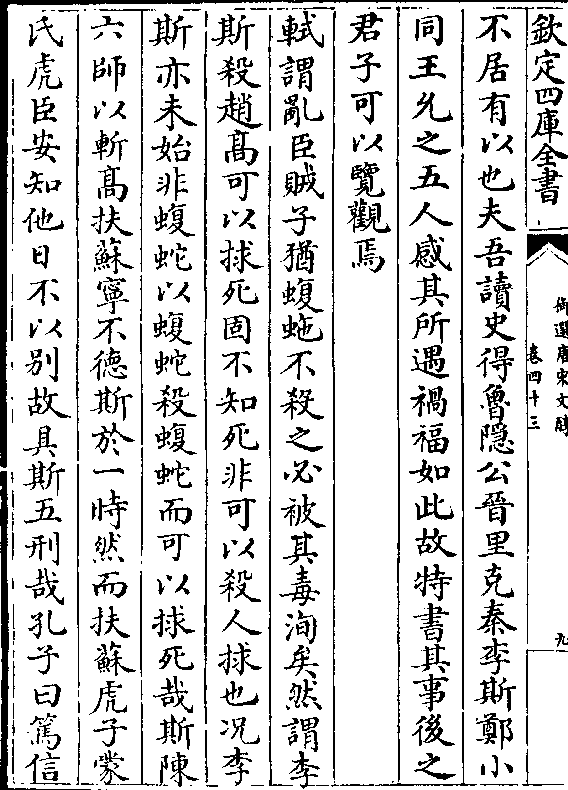 欽定四庫全書
御選唐宋文醇
卷四十三
九
不居有以也夫吾讀史得魯隱公晉里克秦李斯鄭小
同王允之五人感其所遇禍福如此故特書其事後之
君子可以覽觀焉
軾謂亂臣賊子猶蝮虵不殺之必被其毒洵矣然謂李
斯殺趙髙可以捄死固不知死非可以殺人捄也况李
斯亦未始非蝮蛇以蝮蛇殺蝮蛇而可以捄死哉斯陳
六師以斬髙扶蘇寧不德斯於一時然而扶蘇虎子蒙
氏虎臣安知他日不以别故具斯五刑哉孔子曰篤信